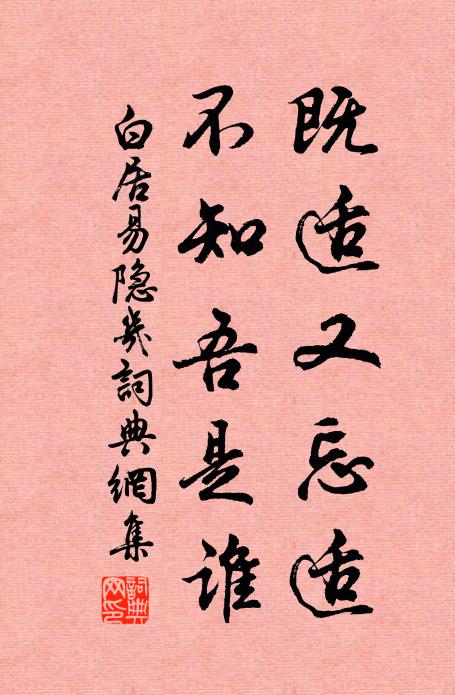 既适又忘适
不知吾是谁
白居易隐几詞典網集
詞典网印